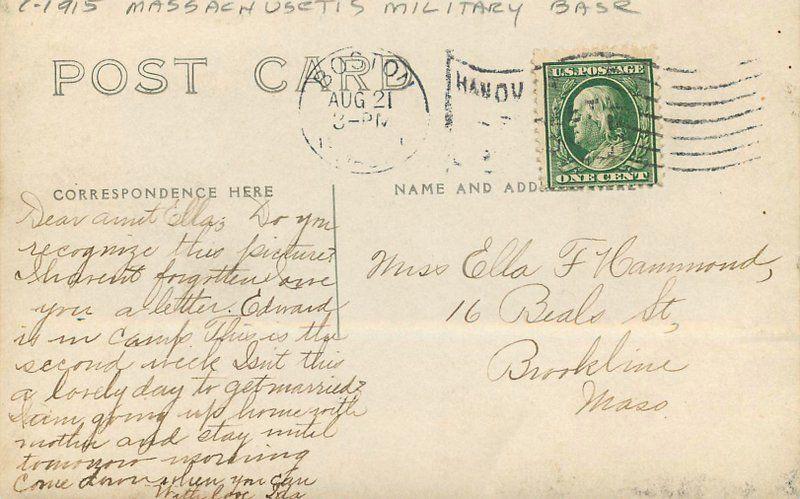 C-1915 MASSACHUSETTS MILITARY BASE
POST CARD
BOSTON
AUG 21
3-PM
HANOV
U.S. POSTAGE
ONE CENT
CORRESPONDENCE HERE
NAME AND ADD
Dear aunt Ella; Do you
recognize this picture?
I havent forgotten owe
you a letter. Edward
is in camp. This is the
second week Isnt this
a lovely day to get married?
I am going up home with
mother and stay until
tomorrow morning
Come down when you can
With love Ida
Miss Ella F Hammond,
16 Beals St,
Brookline
Mass